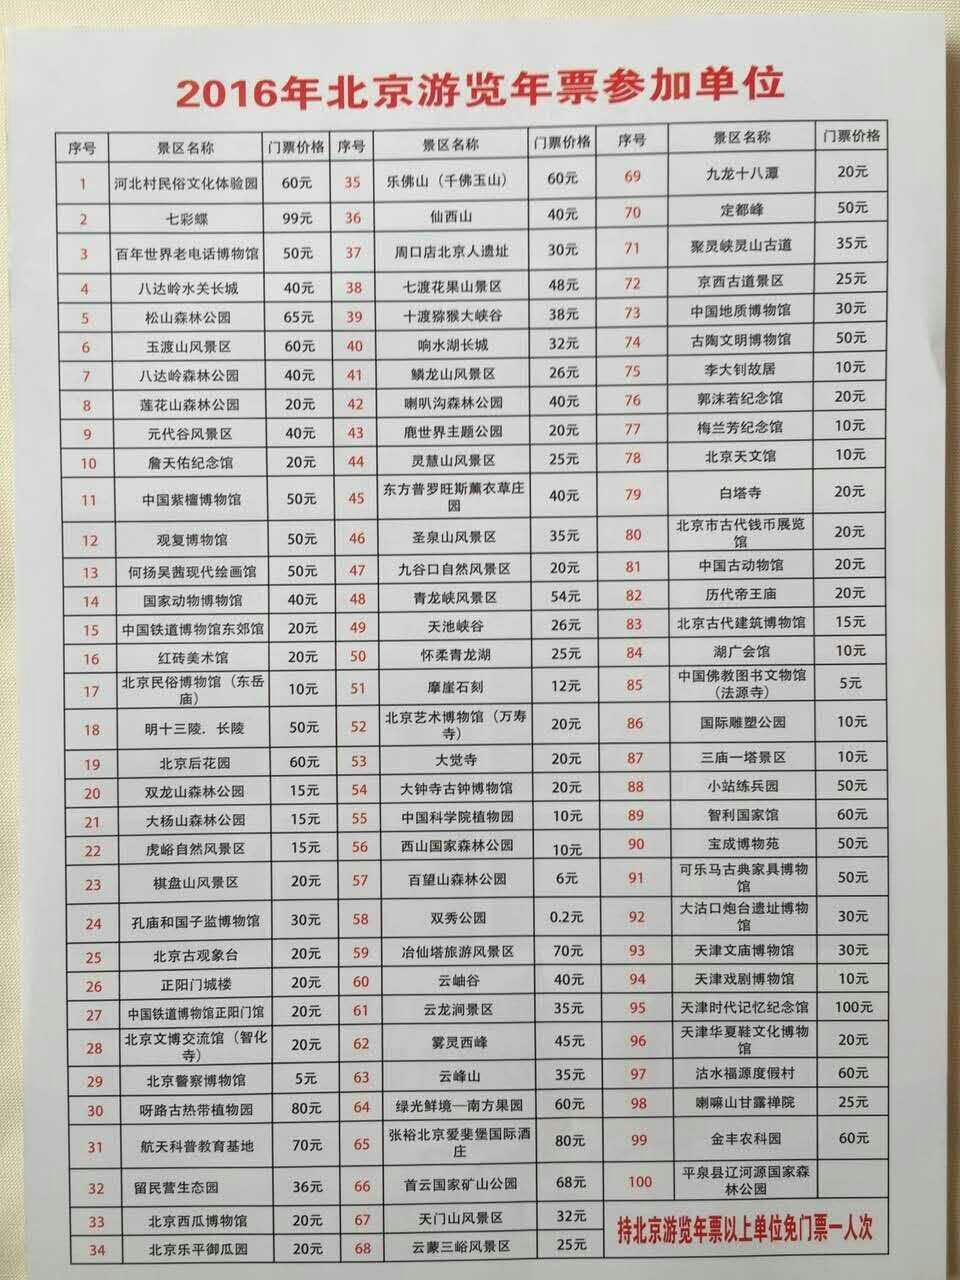 2016年北京游览年票参加单位
序号 景区名称 门票价格 序号 景区名称 门票价格 序号 景区名称 门票价格
1 河北村民俗文化体验园 60元 35 乐佛山（千佛玉山） 60元 69 九龙十八潭 20元
2 七彩蝶 99元 36 仙西山 40元 70 定都峰 50元
3 百年世界老电话博物馆 50元 37 周口店北京人遗址 30元 71 聚灵峡灵山古道 35元
4 八达岭水关长城 40元 38 七渡花果山景区 48元 72 京西古道景区 25元
5 松山森林公园 65元 39 十渡猕猴大峡谷 38元 73 中国地质博物馆 30元
6 玉渡山风景区 60元 40 响水湖长城 32元 74 古陶文明博物馆 50元
7 八达岭森林公园 40元 41 鳞龙山风景区 26元 75 李大钊故居 10元
8 莲花山森林公园 20元 42 喇叭沟森林公园 40元 76 郭沫若纪念馆 20元
9 元代谷风景区 40元 43 鹿世界主题公园 20元 77 梅兰芳纪念馆 10元
10 詹天佑纪念馆 20元 44 灵慧山风景区 25元 78 北京天文馆 10元
11 中国紫檀博物馆 50元 45 东方普罗旺斯薰衣草庄园 40元 79 白塔寺 20元
12 观复博物馆 50元 46 圣泉山风景区 35元 80 北京市古代钱币展览馆 20元
13 何扬吴茜现代绘画馆 50元 47 九谷口自然风景区 20元 81 中国古动物馆 20元
14 国家动物博物馆 40元 48 青龙峡风景区 54元 82 历代帝王庙 20元
15 中国铁道博物馆东郊馆 20元 49 天池峡谷 26元 83 北京古代建筑博物馆 15元
16 红砖美术馆 20元 50 怀柔青龙湖 25元 84 湖广会馆 10元
17 北京民俗博物馆（东岳庙） 10元 51 摩崖石刻 12元 85 中国佛教图书文物馆（法源寺） 5元
18 明十三陵．长陵 50元 52 北京艺术博物馆（万寿寺） 20元 86 国际雕塑公园 10元
19 北京后花园 60元 53 大觉寺 20元 87 三庙一塔景区 10元
20 双龙山森林公园 15元 54 大钟寺古钟博物馆 20元 88 小站练兵园 50元
21 大杨山森林公园 15元 55 中国科学院植物园 10元 89 智利国家馆 60元
22 虎峪自然风景区 15元 56 西山国家森林公园 10元 90 宝成博物苑 50元
23 棋盘山风景区 20元 57 百望山森林公园 6元 91 可乐马古典家具博物馆 50元
24 孔庙和国子监博物馆 30元 58 双秀公园 0.2元 92 大沽口炮台遗址博物馆 30元
25 北京古观象台 20元 59 冶仙塔旅游风景区 70元 93 天津文庙博物馆 30元
26 正阳门城楼 20元 60 云岫谷 40元 94 天津戏剧博物馆 10元
27 中国铁道博物馆正阳门馆 20元 61 云龙涧景区 35元 95 天津时代记忆纪念馆 100元
28 北京文博交流馆（智化寺） 20元 62 雾灵西峰 45元 96 天津华夏鞋文化博物馆 20元
29 北京警察博物馆 5元 63 云峰山 35元 97 沽水福源度假村 60元
30 呀路古热带植物园 80元 64 绿光鲜境—南方果园 60元 98 喇嘛山甘露禅院 25元
31 航天科普教育基地 70元 65 张裕北京爱斐堡国际酒庄 80元 99 金丰农科园 60元
32 留民营生态园 36元 66 首云国家矿山公园 68元 100 平泉县辽河源国家森林公园
33 北京西瓜博物馆 20元 67 天门山风景区 32元 持北京游览年票以上单位免门票一人次
34 北京乐平御瓜园 20元 68 云蒙三峪风景区 25元